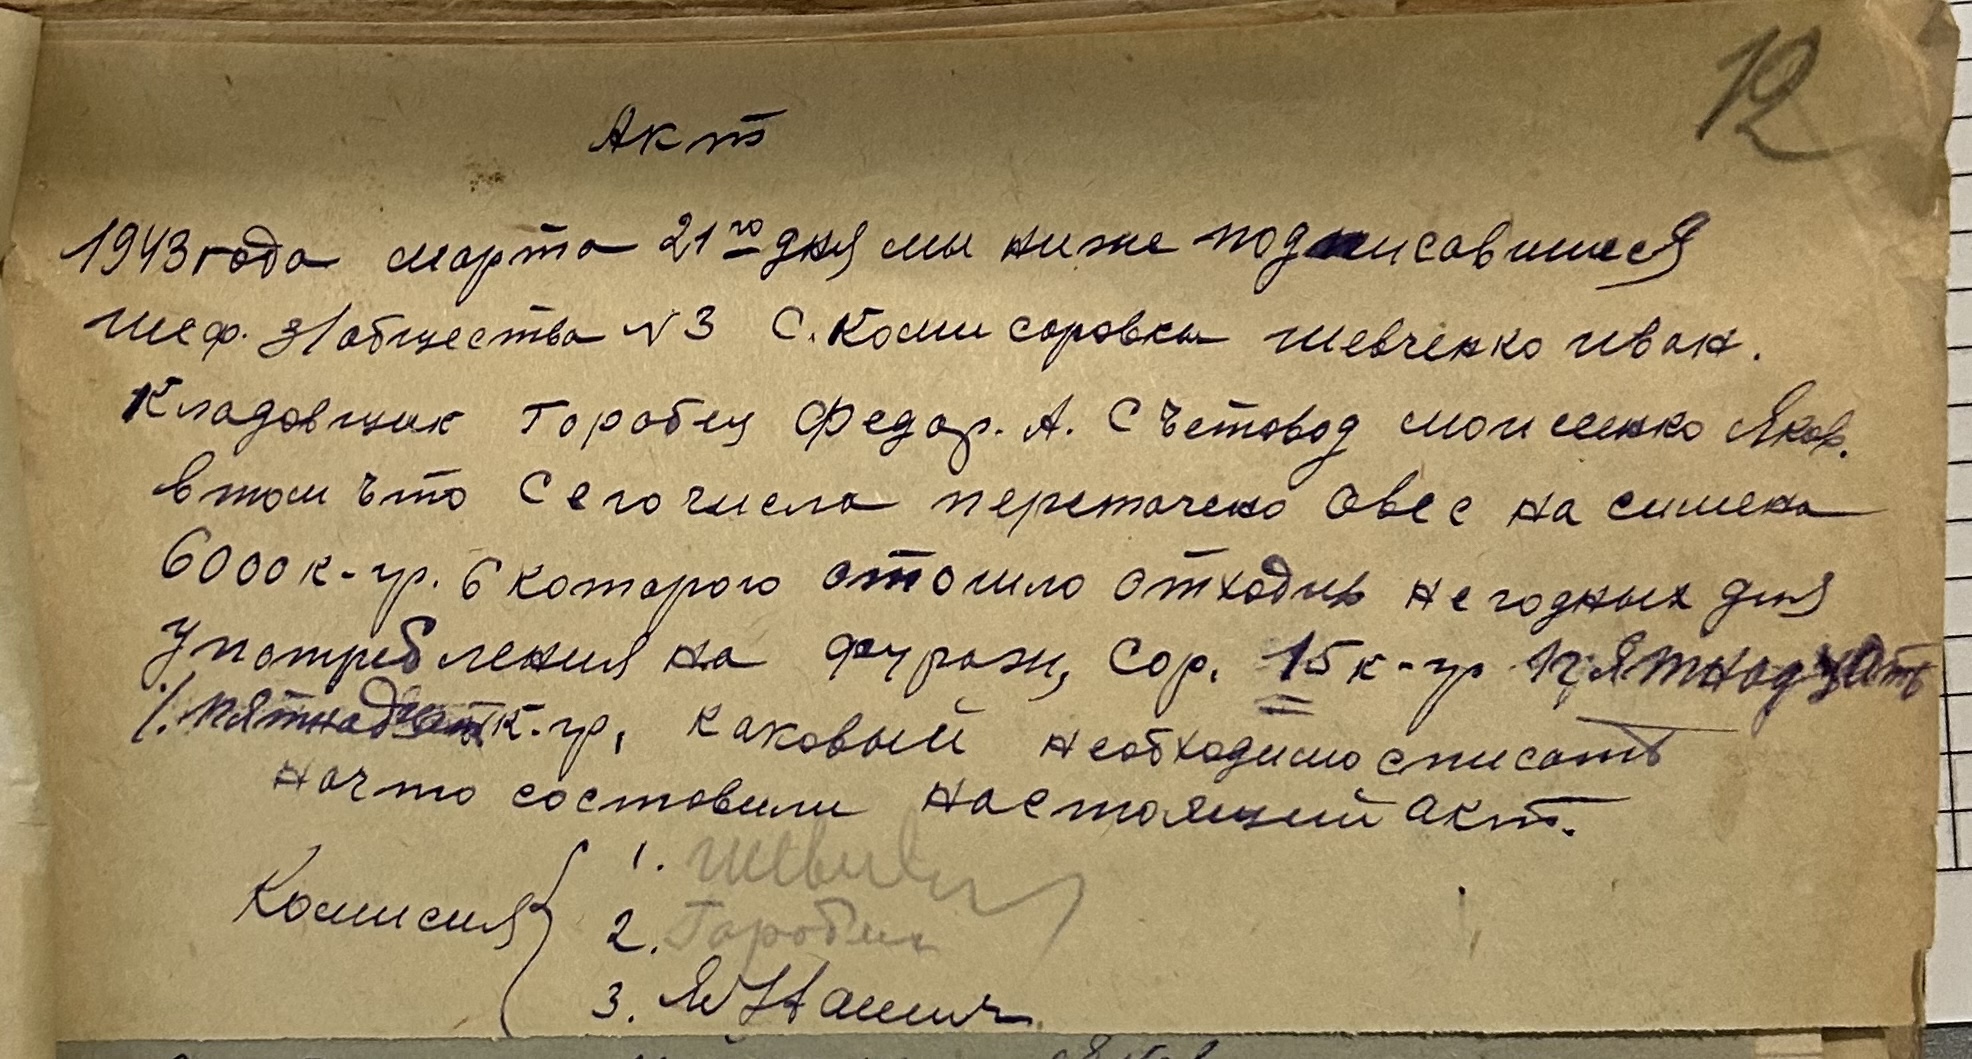 12
Акт
1943 года марта 21го дня мы ниже подписавшиеся
шеф. з/общества N 3 С. Комисаровка Шевченко Иван.
Кладовщик Горобец Федор. А. Счетовод Моисенко Яков.
втом что Сего числа переточено Овес на симена
6000 к-гр. с которого отошло отходив негодных для
употребления на фураж, Сор. 15 к-гр пятнодцать
/. пятнадцать к-гр, каковый необходимо списать
начто составили настоящий акт.
Комисия
1.
2. Горобец
3.